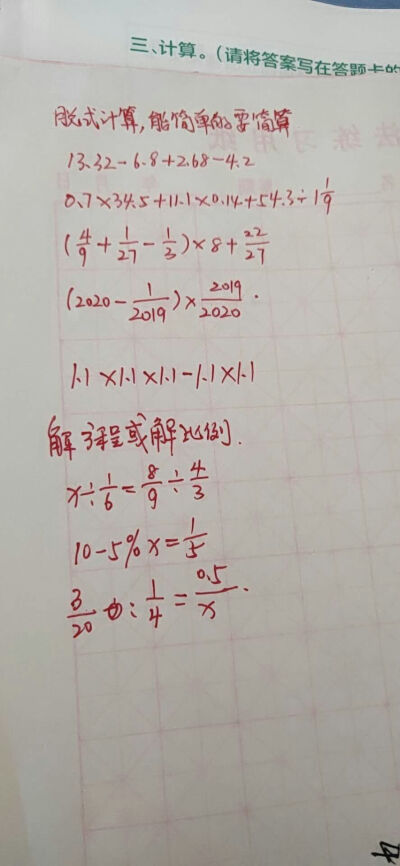 三、计算。(请将答案写在答题卡的
脱式计算,能简单的要简算
13.32-6.8+2.68-4.2
0.7×34.5+11.1×0.14+54.3÷1 1/9
(4/9+1/27-1/3)×8+22/27
(2020-1/2019)×2019/2020.
1.1×1.1×1.1-1.1×1.1
解方程或解比例.
x÷1/6=8/9÷4/3
10-5%x=1/5
3/20:1/4=0.5/x.